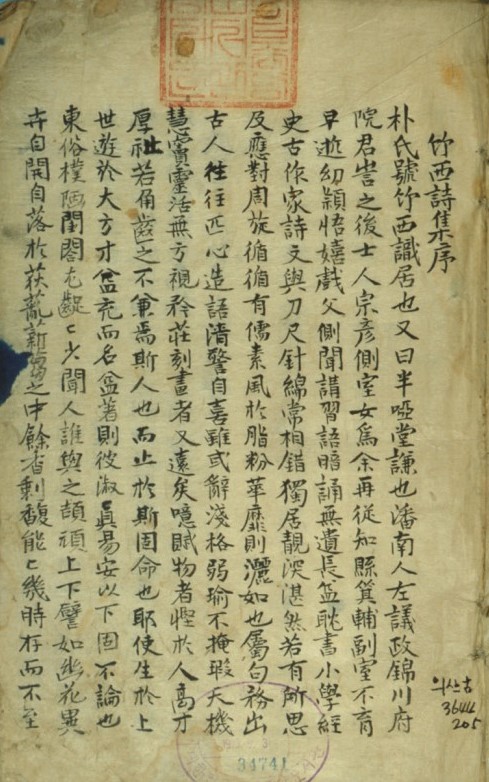 竹西詩集序
朴氏號竹西識居也又曰半啞堂謙也潘南人左議政錦川府
院君訔之後士人宗彦側室女爲余再從知縣箕輔副室不育
早逝幼穎悟嬉戱父側聞講習語暗誦無遺長益耽書小學經
史古作家詩文與刀尺針綿常相錯獨居靚深湛然若有所思
及應對周旋循循有儒素風於脂粉華靡則灑如也屬句務出
古人往往匹心造語淸警自喜雖或辭淺格弱瑜不掩瑕天機
慧竇靈活無方視矜莊刻畫者又遠矣噫賦物者慳於人高才
厚祉若角齒之不兼焉斯人也而止於斯固命也耶使生於上
世遊於大方才益充而名益著則彼淑眞易安以下固不論也
東俗樸陋閨閤尤齪匕少聞人誰與之頡頏上下譬如幽花異
卉自開自落於荻蘆薪蒭之中餘香剩馥能匕幾時存而不至
의산古
3644
205
34741